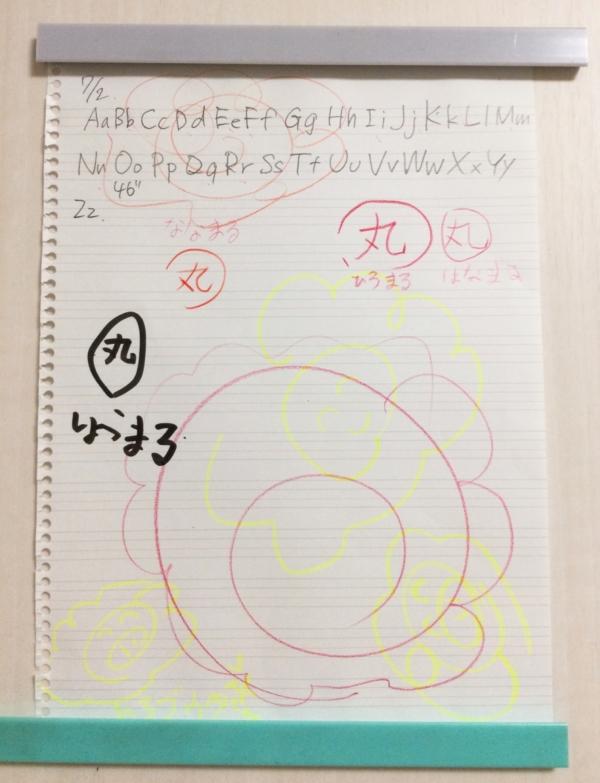 7/2.
AaBb CcDd EeFf Gg Hh Ii Jj Kk Ll Mm
Nn Oo Pp Qq Rr Ss Tt Uu Vv Ww Xx Yy
46"
Zz.
ななまる
丸 丸
ひろまる はなまる
丸
丸